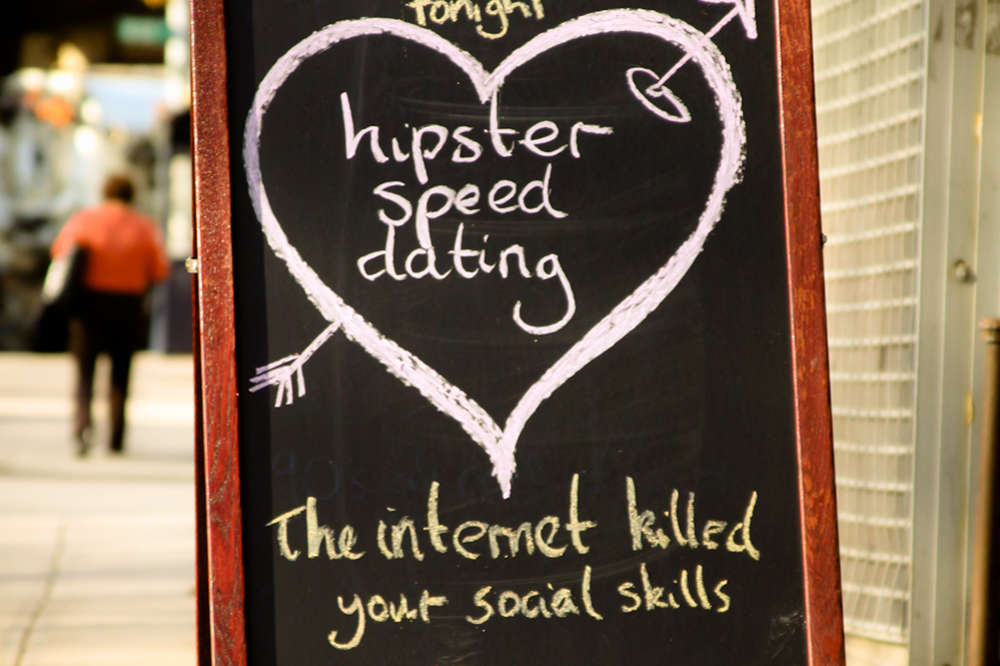 tonight
hipster
speed
dating
The internet killed
your social skills